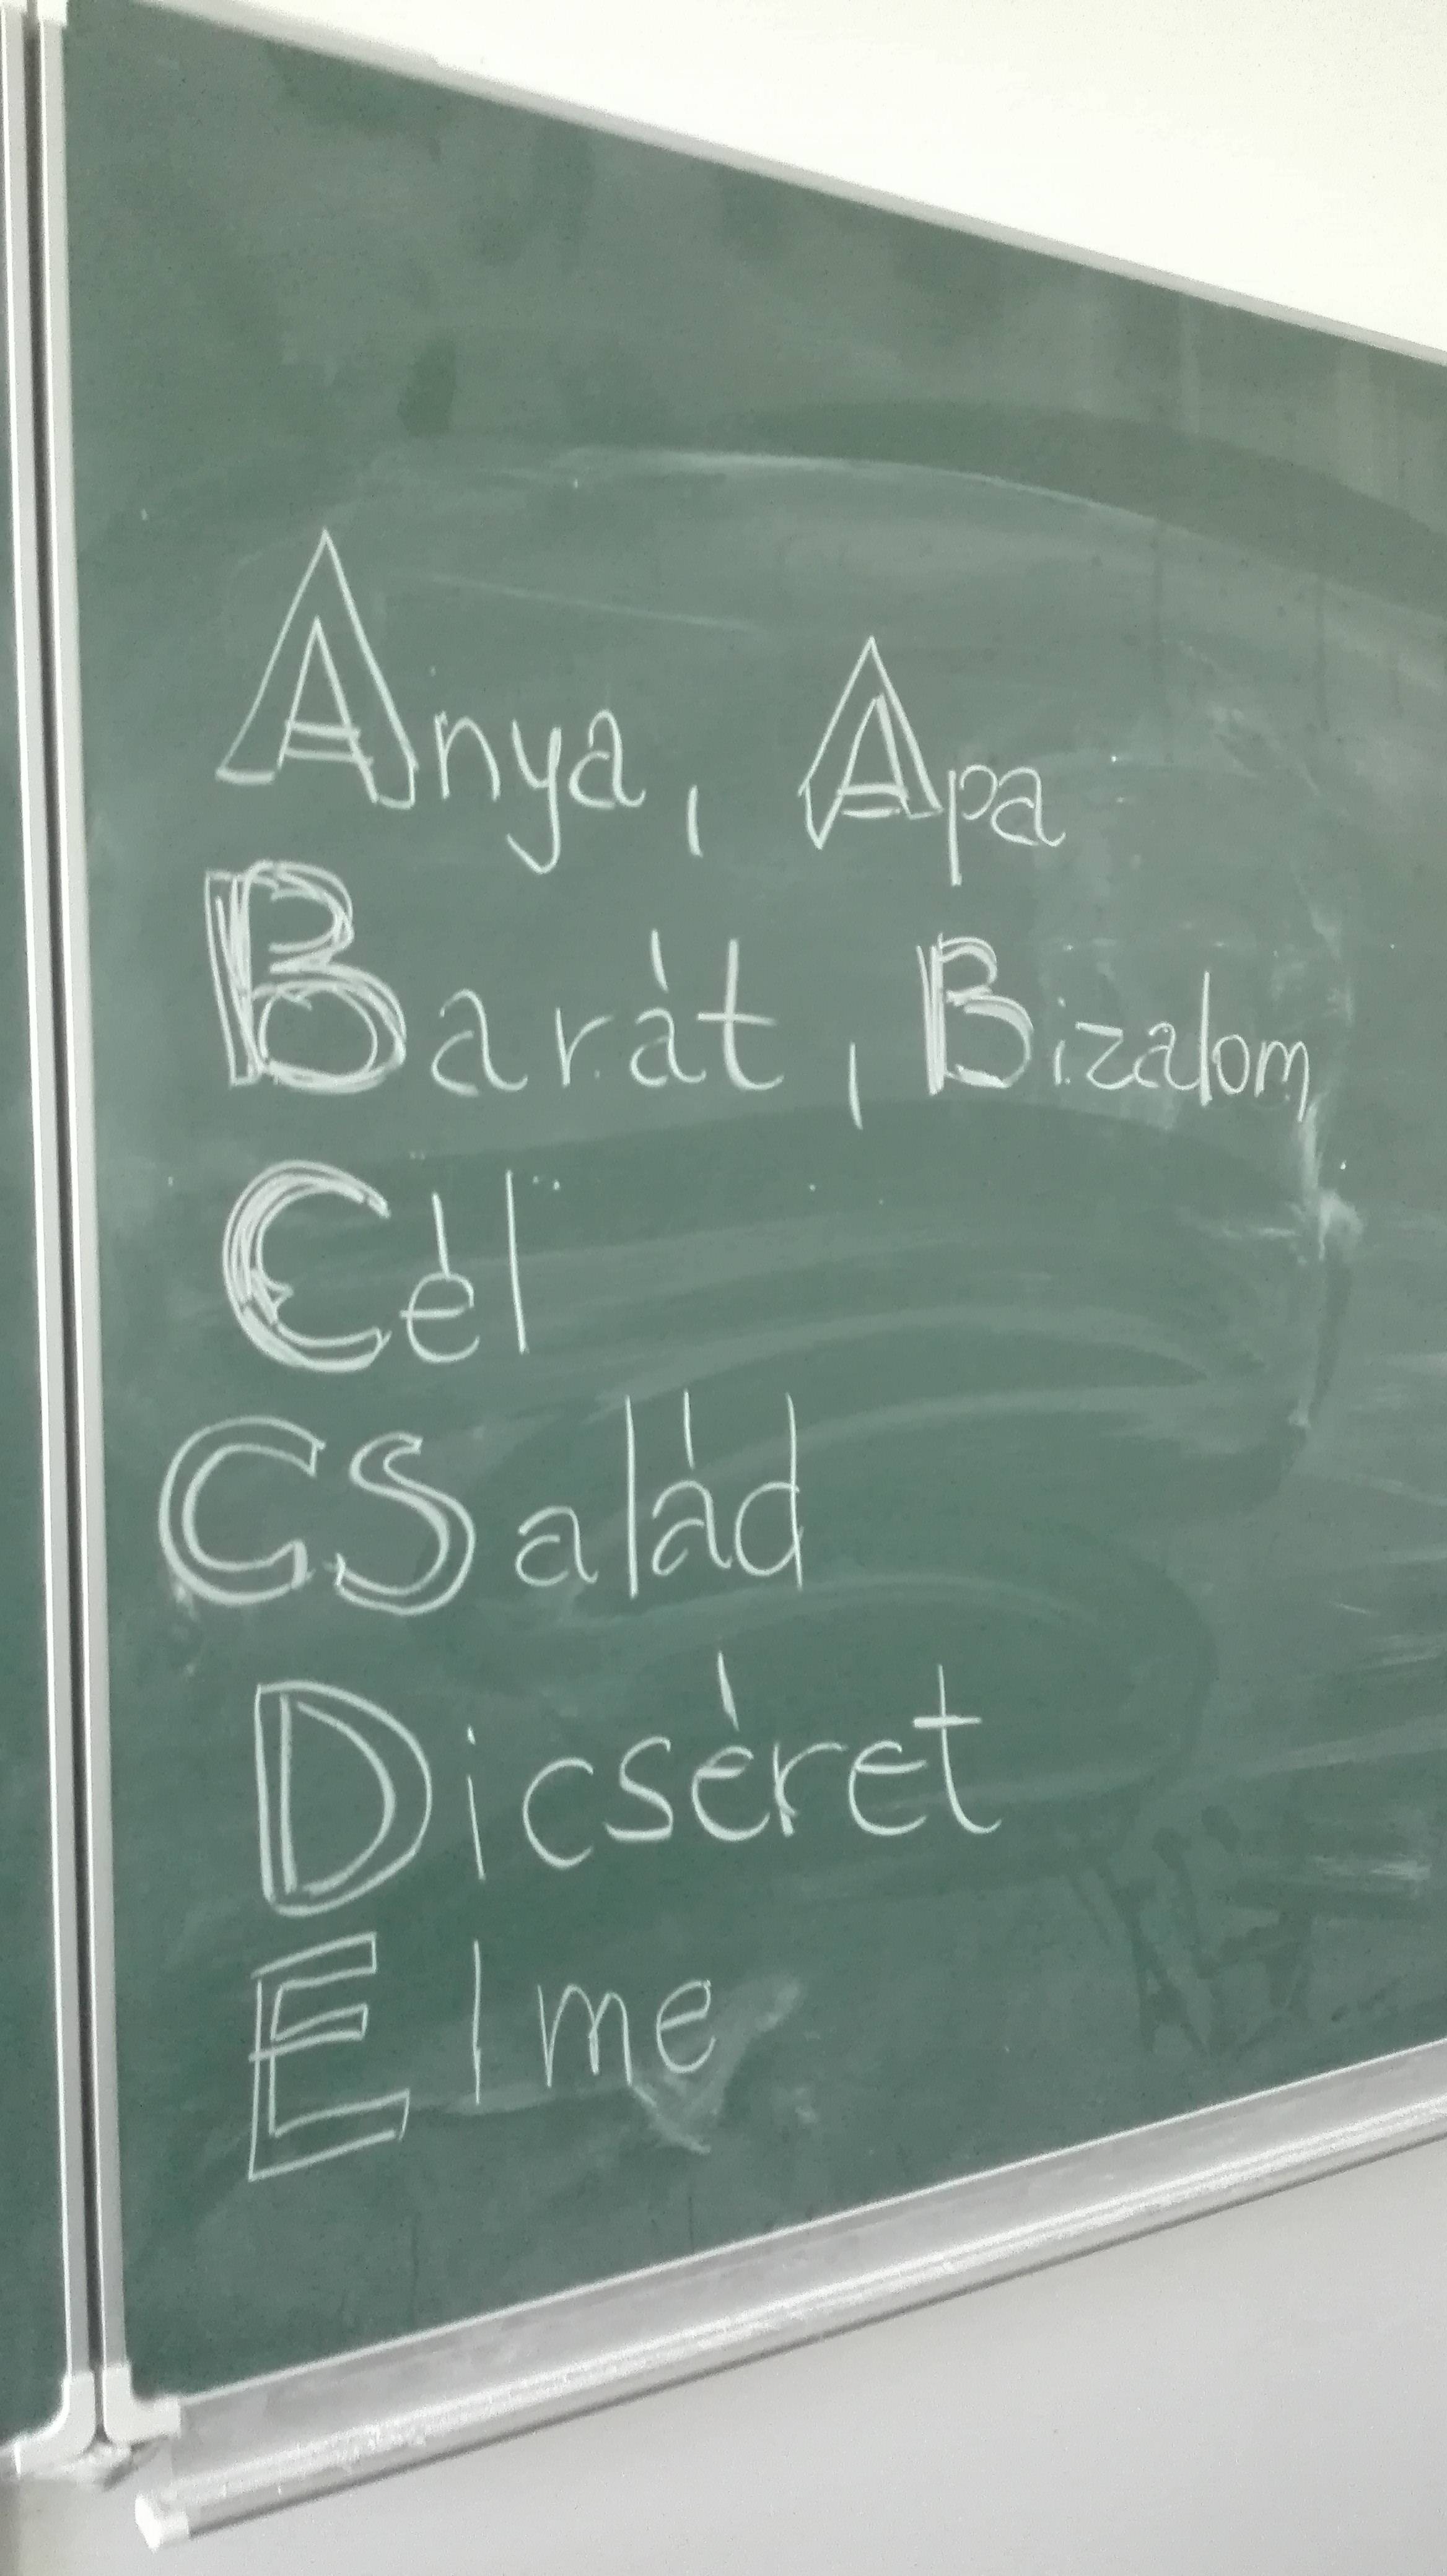 Anya, Apa
Barát, Bizalom
Cél
CSalád
Dicséret
Elme